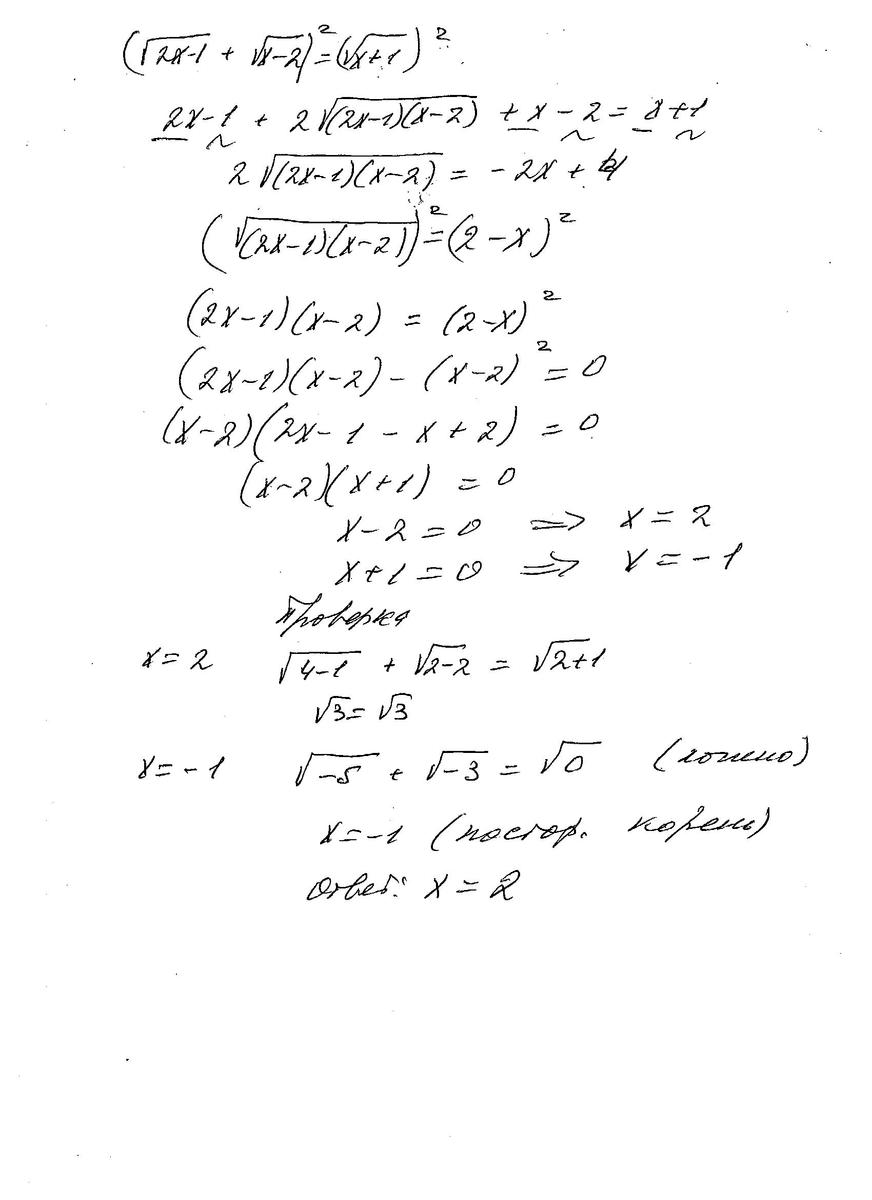 (√(2x-1) + √(x-2))² = (√(x+1))²
2x-1 + 2√((2x-1)(x-2)) + x - 2 = x+1
2√((2x-1)(x-2)) = - 2x + 4
(√((2x-1)(x-2)))² = (2-x)²
(2x-1)(x-2) = (2-x)²
(2x-1)(x-2) - (x-2)² = 0
(x-2)(2x- 1 - x + 2) = 0
(x-2)(x+1) = 0
x-2 = 0 => x = 2
x+1 = 0 => x = -1
Проверка
x = 2 √(4-1) + √(2-2) = √(2+1)
√3 = √3
x = -1 √-5 + √-3 = √0 (ложно)
x = -1 (постор. корень)
Ответ: x = 2